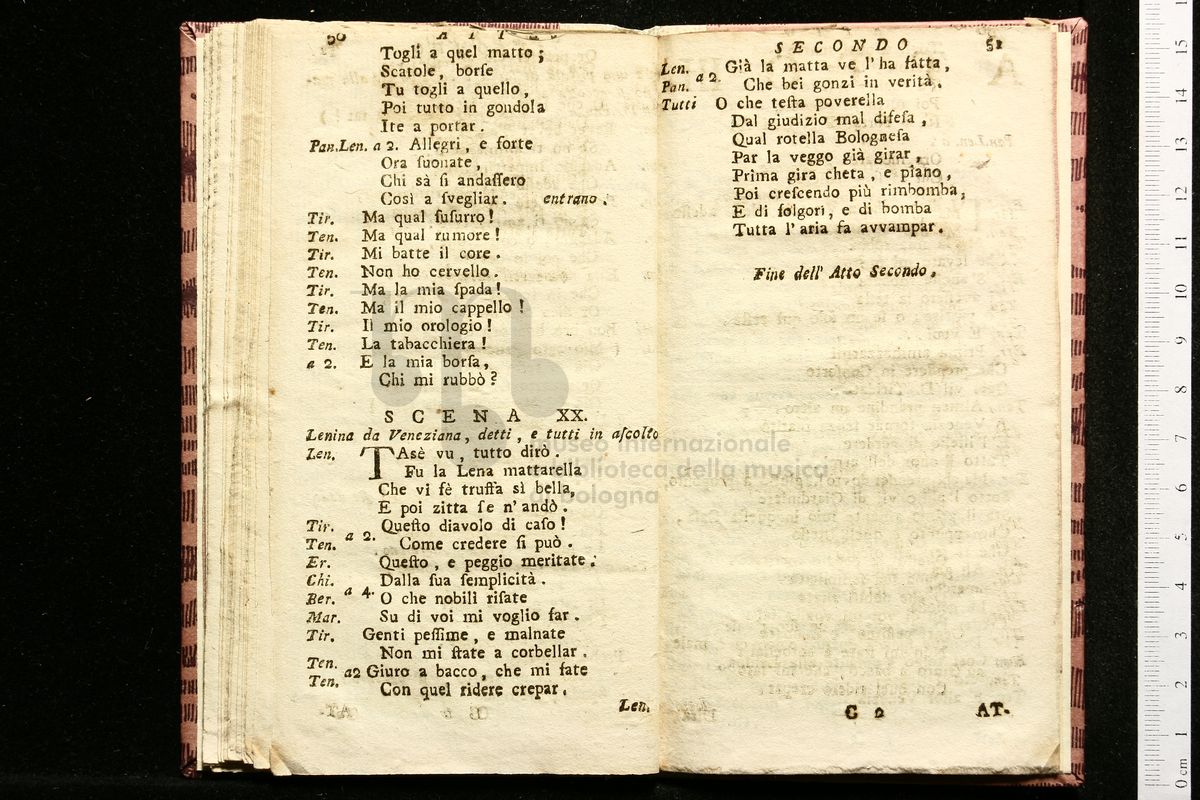 50 ATTO
Togli a quel matto;
Scatole, borſe
Tu togli a quello,
Poi tutto in gondola
Ite a portar.
Pan.Len. a 2. Allegri, e forte
Ora ſuonate,
Chi sà ſi andaſſero
Così a ſvegliar. entrano.
Tir. Ma qual ſuſurro!
Ten. Ma qual rumore!
Tir. Mi batte il core.
Ten. Non ho cervello.
Tir. Ma la mia ſpada!
Ten. Ma il mio cappello!
Tir. Il mio orologio!
Ten. La tabacchiera!
a 2. E la mia borſa,
Chi mi rubbò?
SCENA XX.
Lenina da Veneziana, detti, e tutti in aſcolto
Len. TAsè vu, tutto dirò.
Fu la Lena mattarella
Che vi fè truffa sì bella,
E poi zitta ſe n' andò.
Tir. Queſto diavolo di caſo!
Ten. a 2. Come credere ſi può.
Er. Queſto, e peggio meritate.
Chi. Dalla ſua ſemplicità.
Ber. a 4. O che nobili riſate
Mar. Su di voi mi voglio far.
Tir. Genti peſſime, e malnate
Non mi ſtate a corbellar.
Ten. a2 Giuro a bacco, che mi fate
Ten. Con quel ridere crepar.
Len.
SECONDO 51
Len. Già la matta ve l' ha fatta,
Pan. a 2. Che bei gonzi in verità.
Tutti O che teſta poverella
Dal giudizio mal difeſa,
Qual rotella Bolognesa
Par la veggo già girar,
Prima gira cheta, e piano,
Poi creſcendo più rimbomba,
E di folgori, e di bomba
Tutta l' aria fa avvampar.
Fine dell' Atto Secondo.
C 2 AT-
museo internazionale
biblioteca della musica
di bologna
0 cm 1 2 3 4 5 6 7 8 9 10 11 12 13 14 15